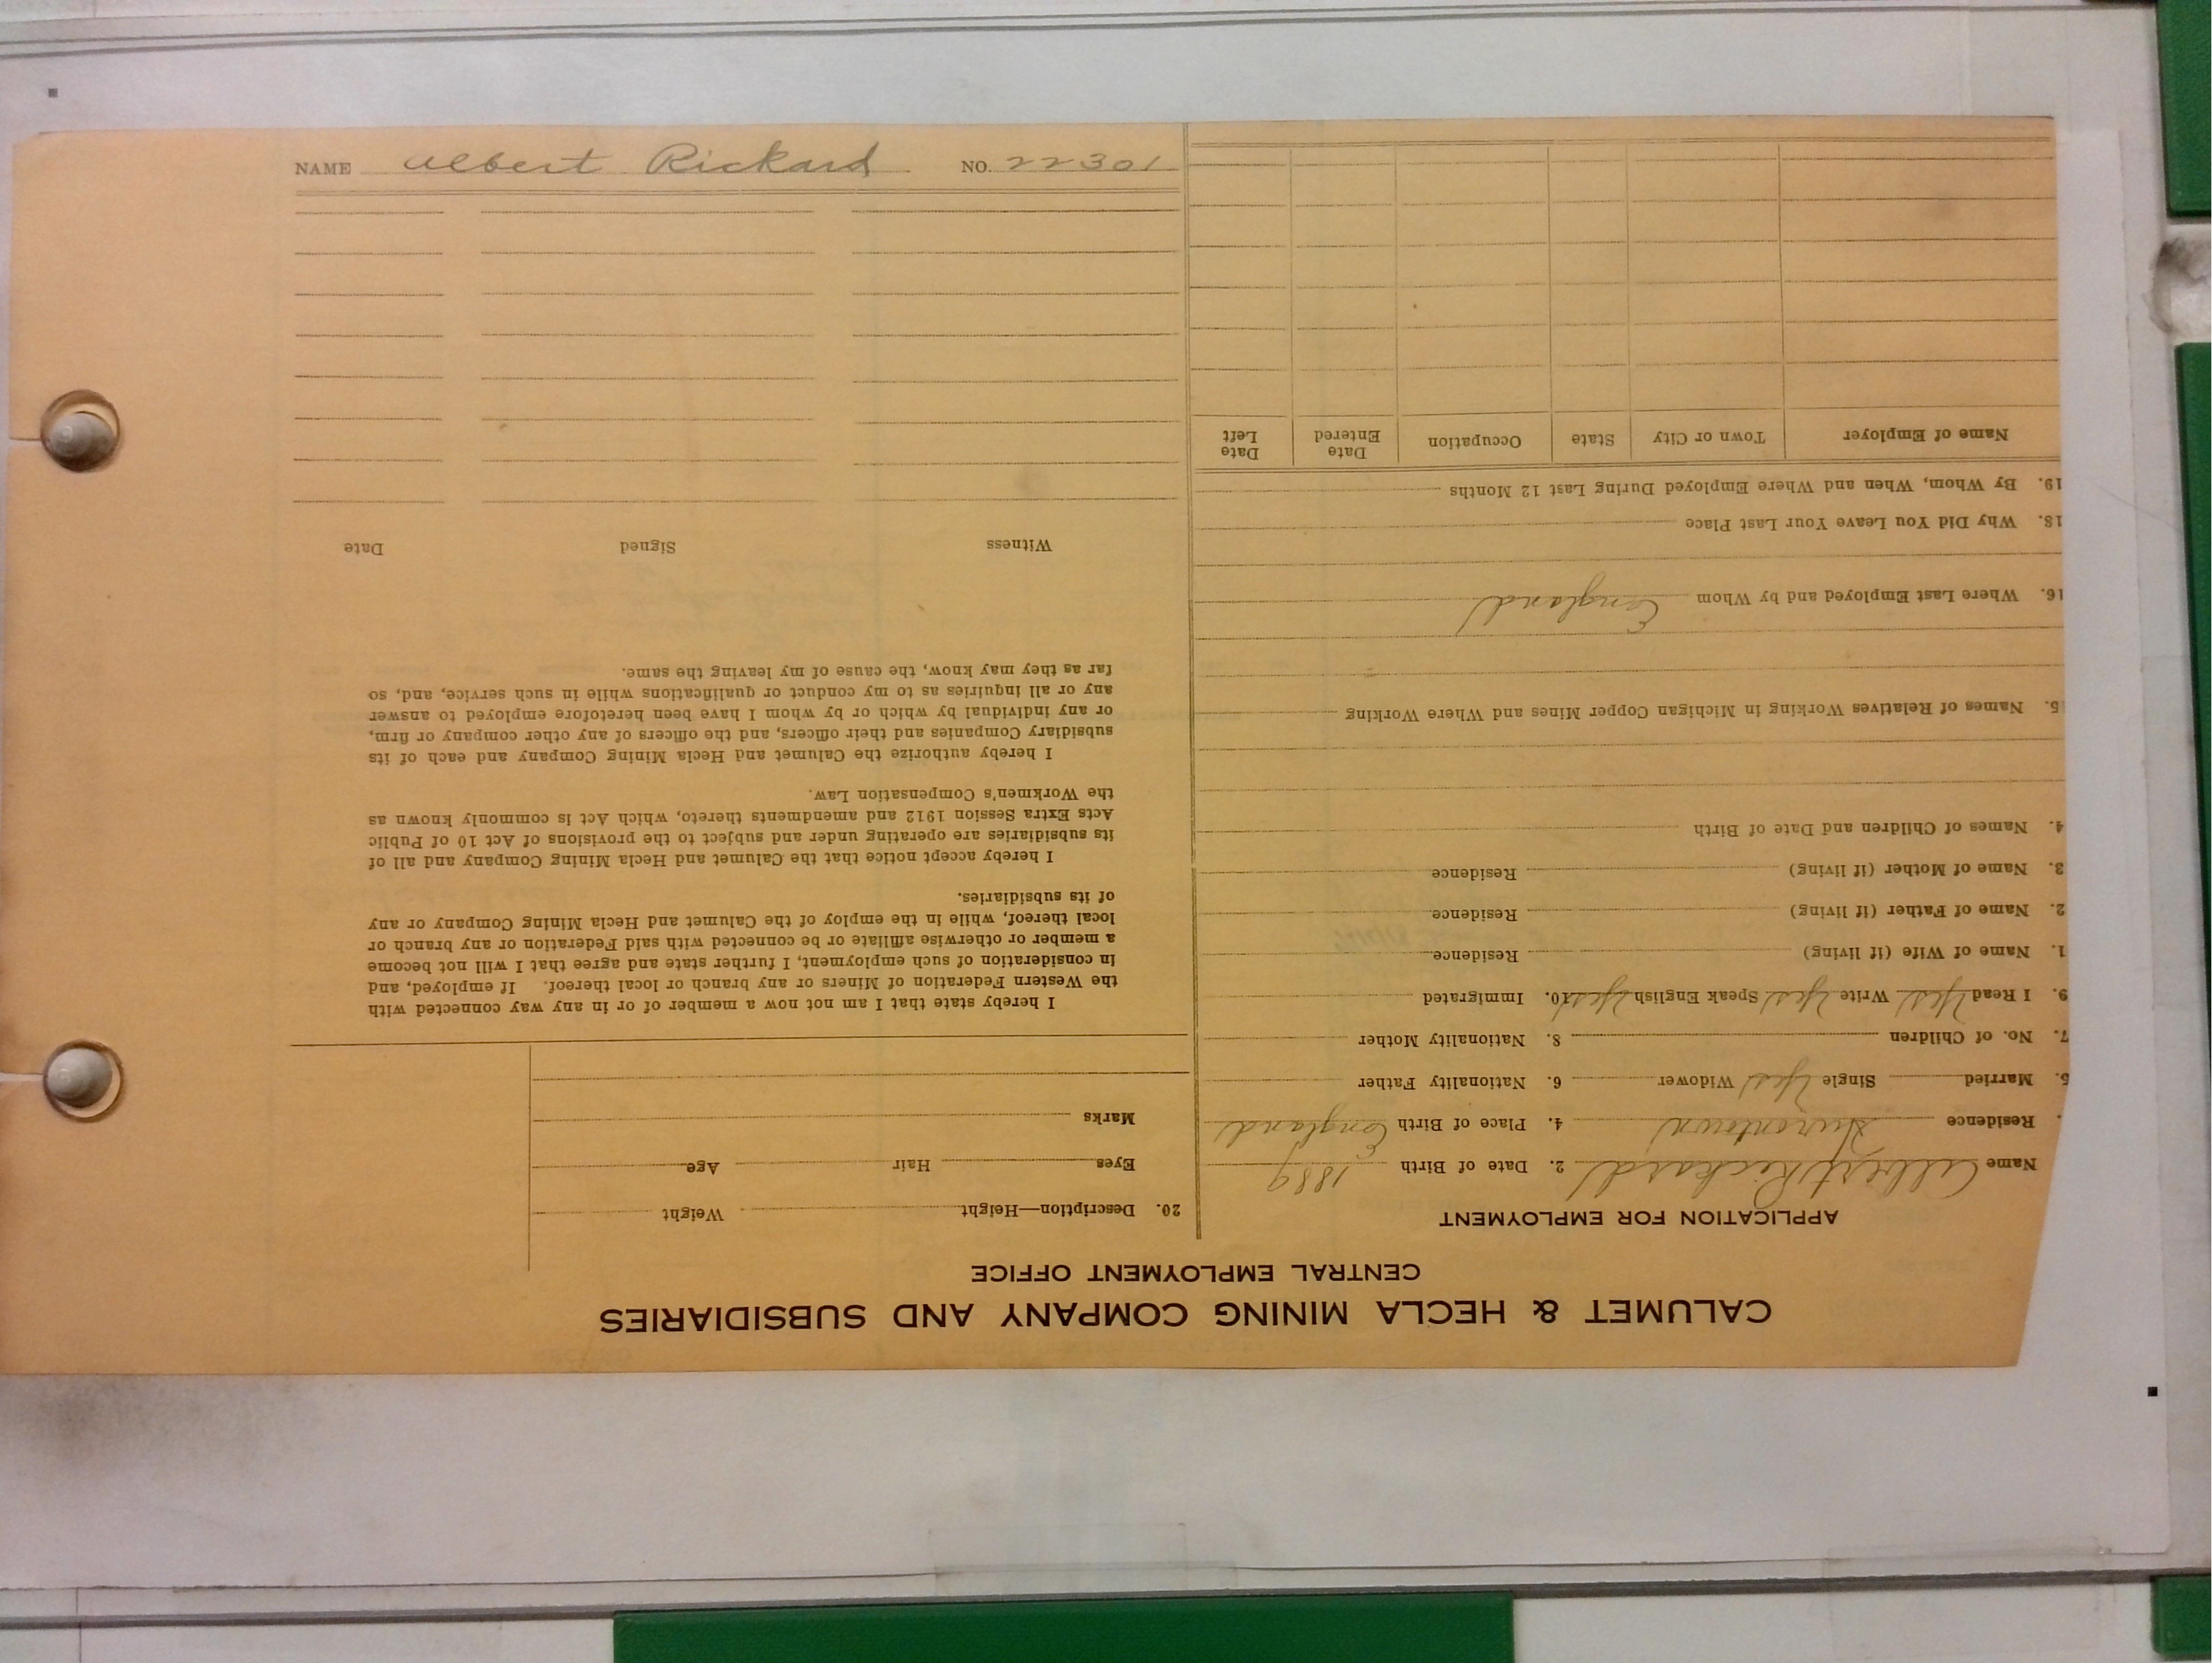 NAME Albert Rickard NO. 22301
CALUMET & HECLA MINING COMPANY AND SUBSIDIARIES
CENTRAL EMPLOYMENT OFFICE
APPLICATION FOR EMPLOYMENT
Name Albert Rickard 2. Date of Birth 1889
. Residence Hurontown 4. Place of Birth England
5. Married Single Yes Widower 6. Nationality Father
7. No. of Children 8. Nationality Mother
9. I Read Yes Write Yes Speak English Yes 10. Immigrated
1. Name of Wife (if living) Residence
2. Name of Father (if living) Residence
3. Name of Mother (if living) Residence
4. Names of Children and Date of Birth
5. Names of Relatives Working in Michigan Copper Mines and Where Working
16. Where Last Employed and by Whom England
18. Why Did You Leave Your Last Place
19. By Whom, When and Where Employed During Last 12 Months
Name of Employer Town or City State Occupation Date Entered Date Left
20. Description—Height Weight
Eyes Hair Age
Marks
I hereby state that I am not now a member of or in any way connected with
the Western Federation of Miners or any branch or local thereof. If employed, and
in consideration of such employment, I further state and agree that I will not become
a member or otherwise affiliate or be connected with said Federation or any branch or
local thereof, while in the employ of the Calumet and Hecla Mining Company or any
of its subsidiaries.
I hereby accept notice that the Calumet and Hecla Mining Company and all of
its subsidiaries are operating under and subject to the provisions of Act 10 of Public
Acts Extra Session 1912 and amendments thereto, which Act is commonly known as
the Workmen's Compensation Law.
I hereby authorize the Calumet and Hecla Mining Company and each of its
subsidiary Companies and their officers, and the officers of any other company or firm,
or any individual by which or by whom I have been heretofore employed to answer
any or all inquiries as to my conduct or qualifications while in such service, and, so
far as they may know, the cause of my leaving the same.
Witness Signed Date